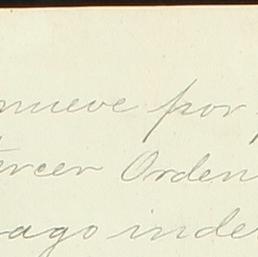 nueve por
ercer Orden
ago inde